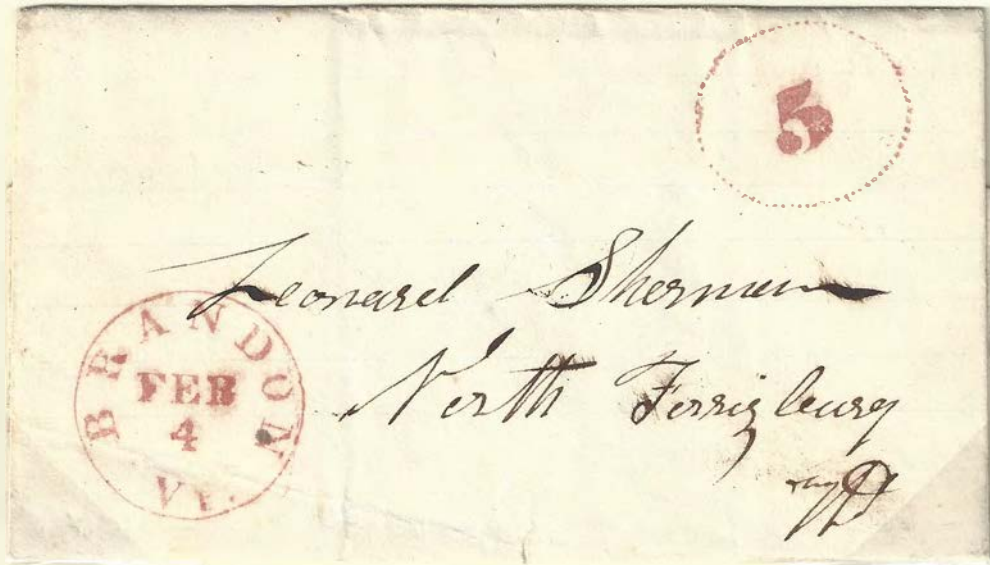 5
Leonard Sherman
North Ferrizburg
BRANDON
FEB
4
VT.